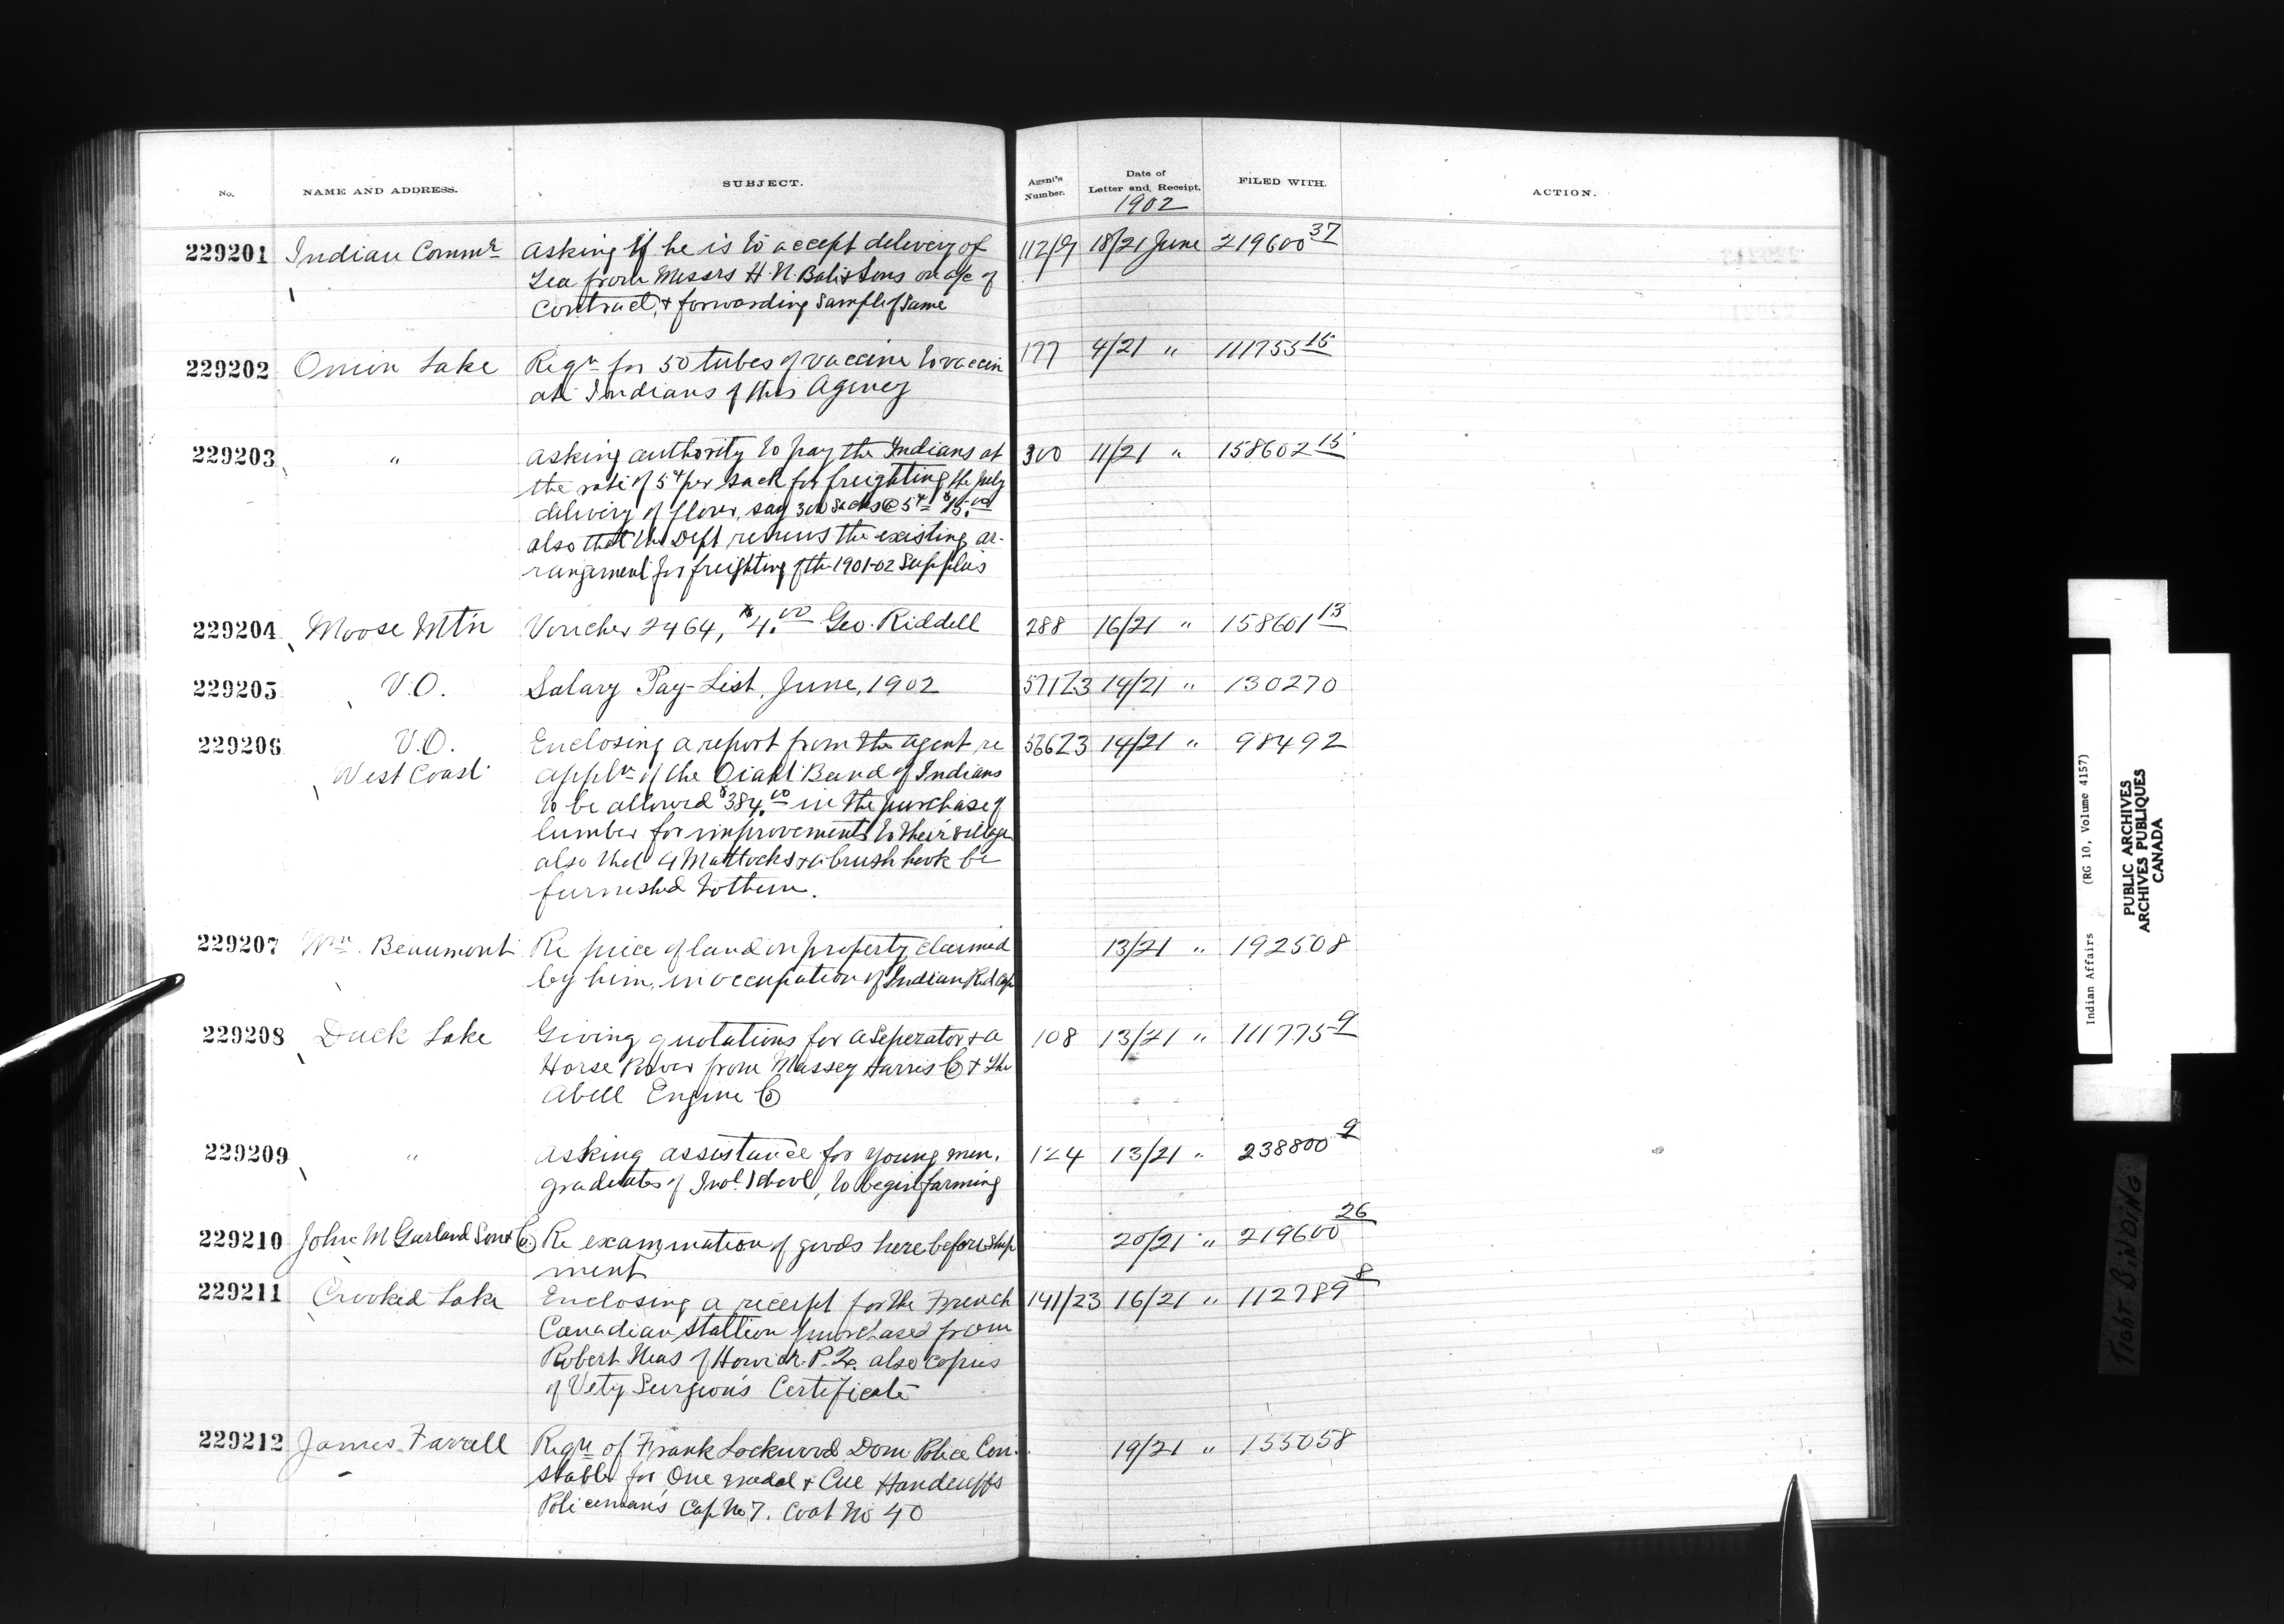 No. NAME AND ADDRESS. SUBJECT. Agent's Number. Date of Letter and Receipt. FILED WITH. ACTION.
1902
229201 Indian Commr Asking if he is to accept delivery of 112/9 18/21 June 219600 37
Tea from Messrs H. N. Bate & Sons on a/c of
Contract, & forwarding Sample of Same
229202 Onion Lake Reqn for 50 tubes of vaccine to vaccin 177 4/21 " 111755 15
ate Indians of this Agency
229203 " Asking authority to pay the Indians at 300 11/21 " 158602 15
the rate of 5¢ per sack for freighting the July
delivery of flour, say 300 Sacks @ 5¢ $15.00
also that the Dept renews the existing ar-
rangement for freighting of the 1901-02 Supplies
229204 Moose Mtn Voucher 2464, $4.00 Geo. Riddell 288 16/21 " 158601 13
229205 V.O. Salary Pay-List, June, 1902 571Z3 14/21 " 130270
229206 V.O. Enclosing a report from the agent re 566Z3 14/21 " 98492
West Coast appln of the Oiaht Band of Indians
to be allowed $384.00 in the purchase of
lumber for improvements to their village
also that 4 Mattocks & a brush hook be
furnished to them.
229207 Wm. Beaumont Re piece of land on property claimed 13/21 " 192508
by him, in occupation of Indian
229208 Duck Lake Giving quotations for a Seperator & a 108 13/21 " 111775 9
Horse Power from Massey Harris Co & The
Abell Engine Co
229209 " Asking assistance for young men, 124 13/21 " 238800 9
graduates of Indl School, to begin farming
229210 John M Garland Son & Co. Re examination of goods here before ship 20/21 " 219600 26
ment
229211 Crooked Lake Enclosing a receipt for the French 141/23 16/21 " 112789 8
Canadian Stallion purchased from
Robert Ness of Howick P.Q. also copies
of Vety Surgeon's Certificate
229212 James Farrell Reqn of Frank Lockwood Dom Police Con- 19/21 " 155058
stable for One medal & One Handcuffs
Policeman's Cap No 7. Coat No 40
Indian Affairs (RG 10, Volume 4157)
PUBLIC ARCHIVES
ARCHIVES PUBLIQUES
CANADA
TIGHT BINDING